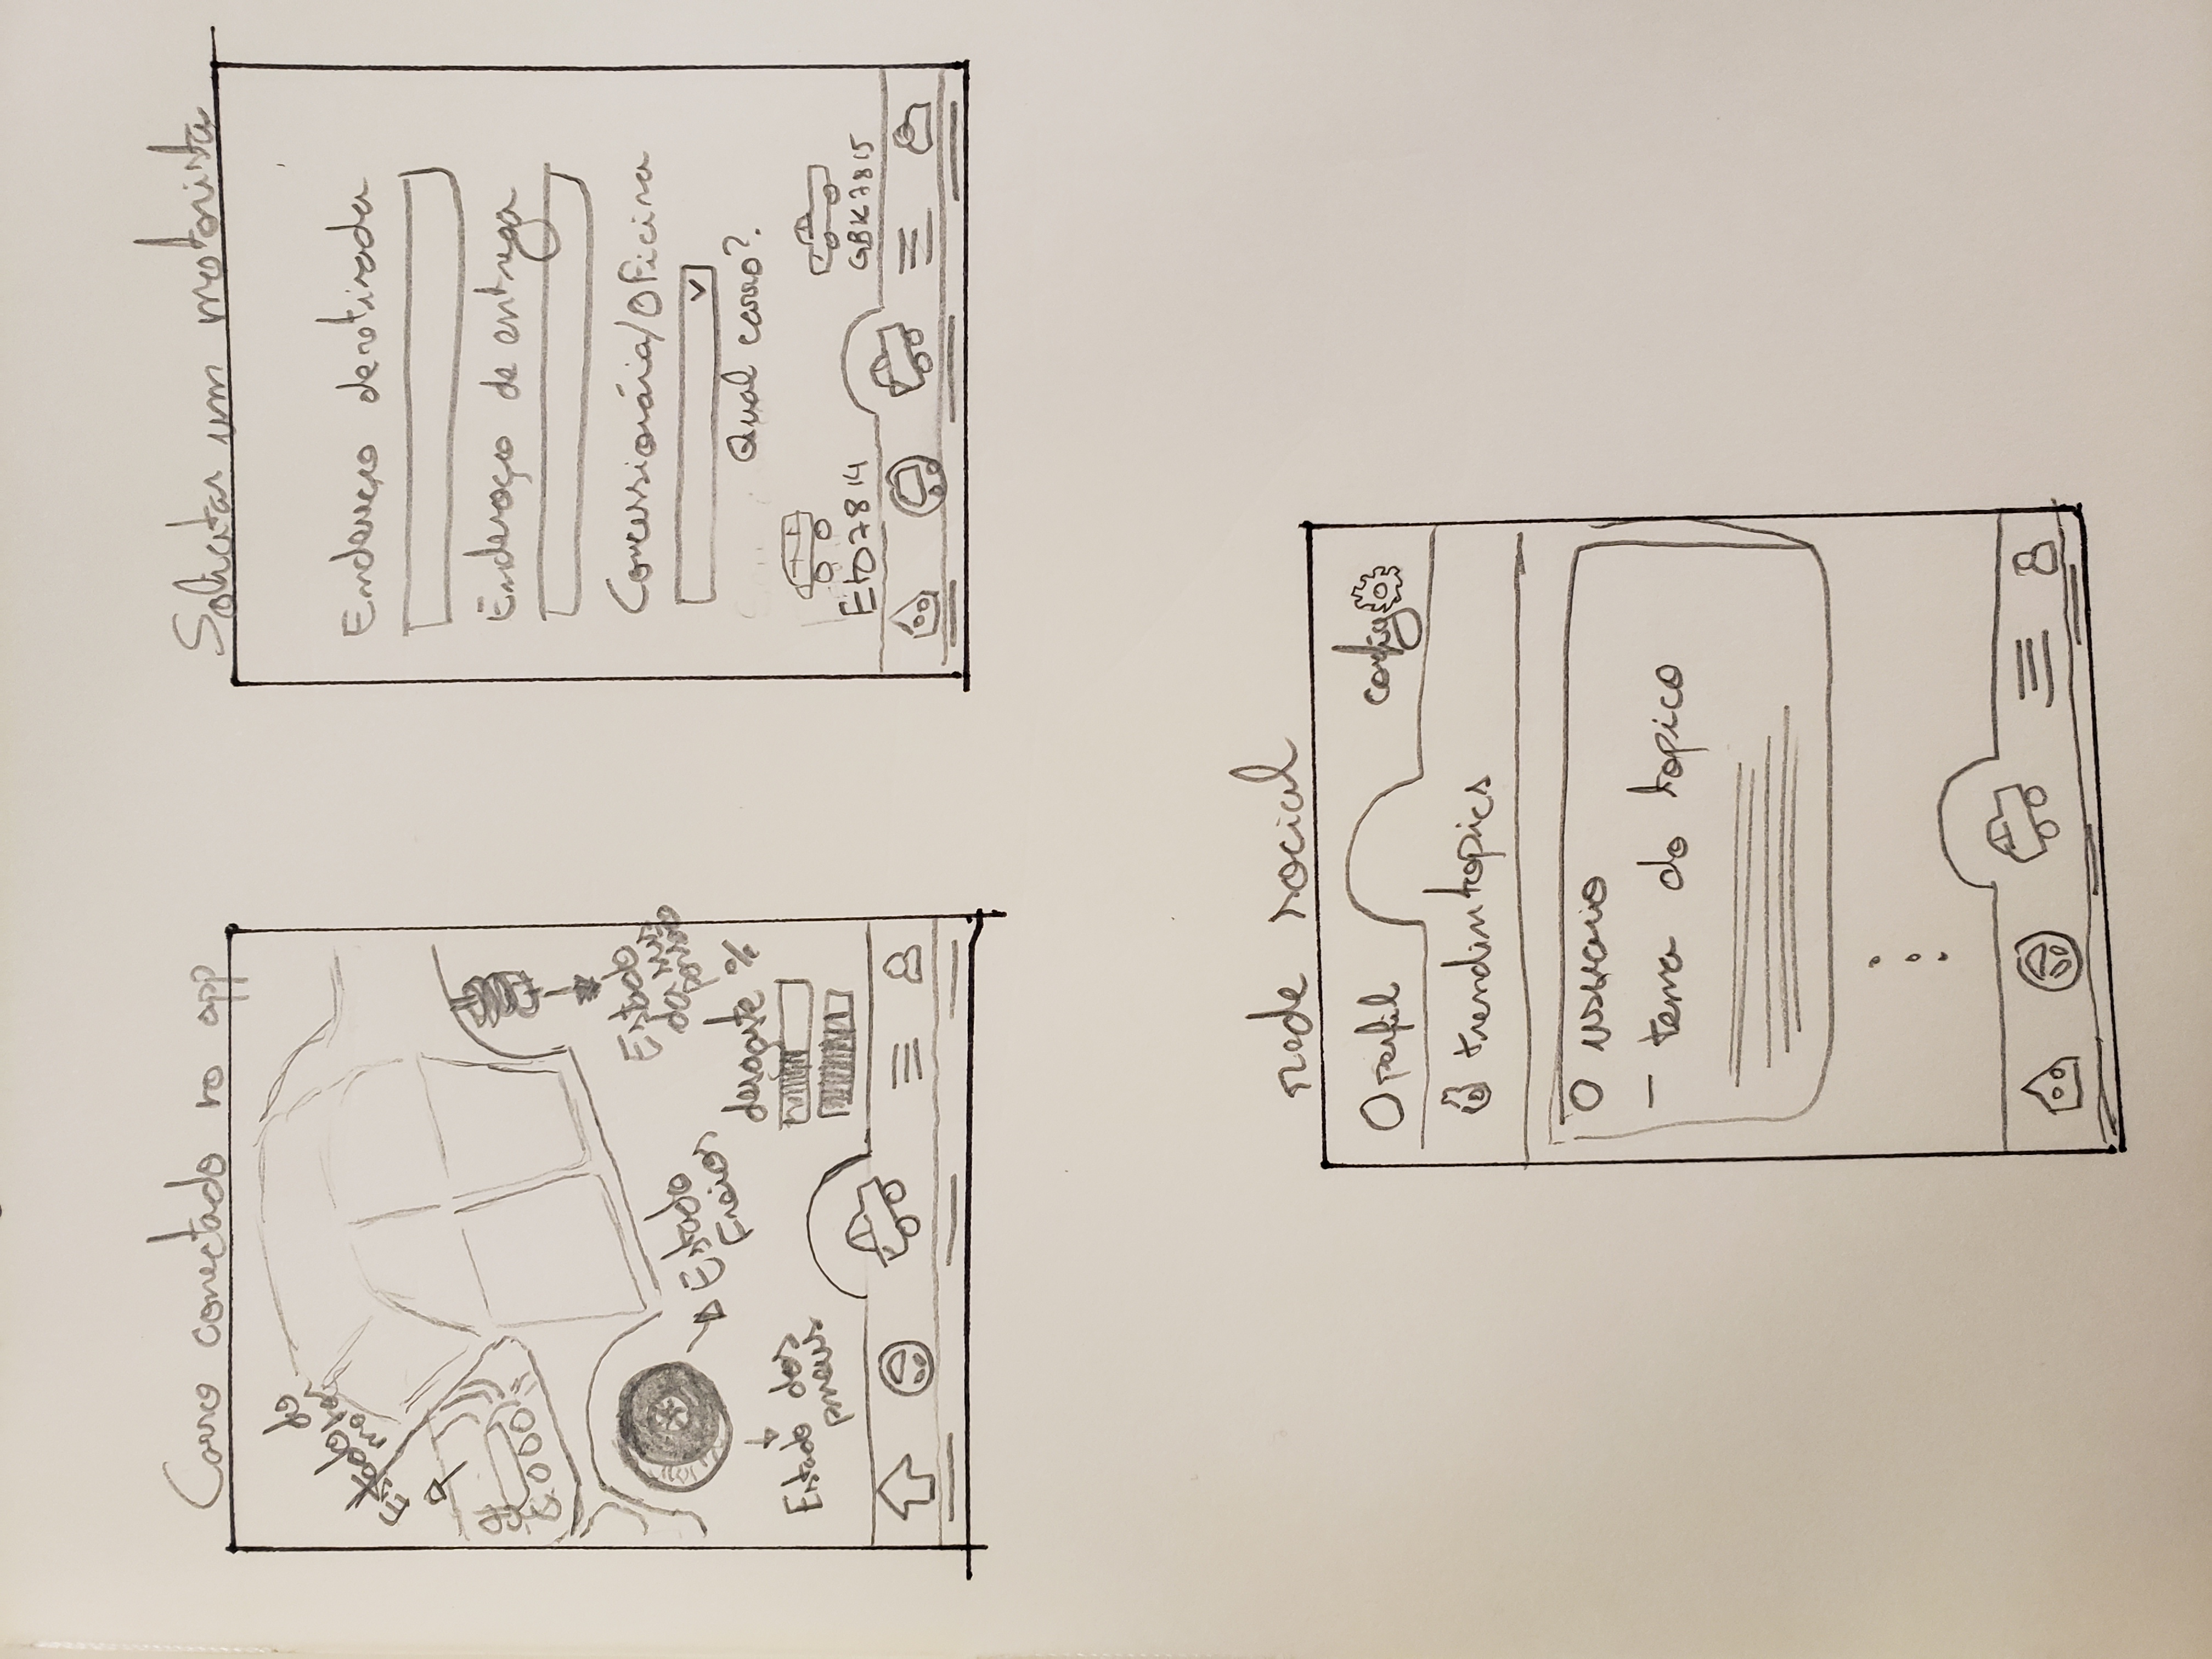 Carro conectado no app
Estado do
motor
Estado
da sus
pensão
Estado
Freios
desgaste %
Estado dos
pneus
Solicitar um motorista
Endereço de retirada
Endereço de entrega
Concessionária/Oficina
Qual carro?
EtO7814
GBK7815
rede social
perfil
config
trendintopics
usuario
- tema do topico